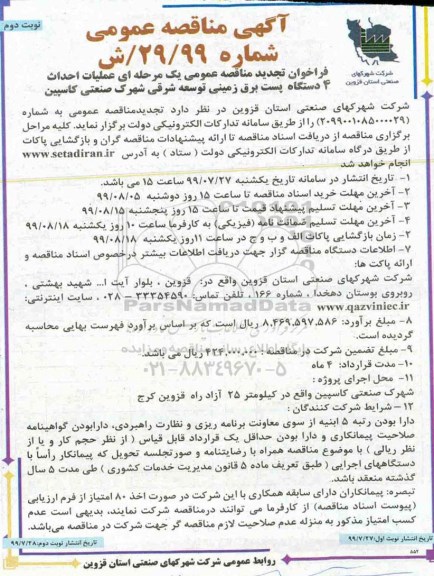 نوبت دوم
آگهی مناقصه عمومی
شماره ۲۹/۹۹/ش
شرکت شهرکهای
صنعتی استان قزوین
فراخوان تجدید مناقصه عمومی یک مرحله ای عملیات احداث
۴ دستگاه پست برق زمینی توسعه شرقی شهرک صنعتی کاسپین
شرکت شهرکهای صنعتی استان قزوین در نظر دارد تجدیدمناقصه عمومی به شماره
(۲۰۹۹۰۰۱۰۸۵۰۰۰۰۲۹) را از طریق سامانه تدارکات الکترونیکی دولت برگزار نماید. کلیه مراحل
برگزاری مناقصه از دریافت اسناد مناقصه تا ارائه پیشنهادات مناقصه گران و بازگشایی پاکات
از طریق درگاه سامانه تدارکات الکترونیکی دولت ( ستاد ) به آدرس www.setadiran.ir
انجام خواهد شد
۱- تاریخ انتشار در سامانه تاریخ یکشنبه ۹۹/۰۷/۲۷ ساعت ۱۵ می باشد.
۲- آخرین مهلت خرید اسناد مناقصه تا ساعت ۱۵ روز دوشنبه ۹۹/۰۸/۰۵
۳- آخرین مهلت تسلیم پیشنهاد قیمت تا ساعت ۱۵ روز پنجشنبه ۹۹/۰۸/۱۵
۴- آخرین مهلت تسلیم ضمانت نامه (فیزیکی) به کارفرما ساعت ۱۰ روز یکشنبه ۹۹/۰۸/۱۸
۲- زمان بازگشایی پاکات الف و ب و ج در ساعت ۱۱روز یکشنبه ۹۹/۰۸/۱۸
۷- اطلاعات دستگاه مناقصه گزار جهت دریافت اطلاعات بیشتر درخصوص اسناد مناقصه و
ارائه پاکت ها:
شرکت شهرکهای صنعتی استان قزوین واقع در: قزوین ، بلوار آیت ا... شهید بهشتی ،
روبروی بوستان دهخدا ، شماره ۱۶۶ ، تلفن تماس: ۳۳۳۵۴۵۹۰ – ۰۲۸ ، سایت اینترنتی:
www.qazviniec.ir
ParsNamadData
۸- مبلغ برآورد: ۸،۴۶۹،۵۹۷،۵۸۶ ریال است که بر اساس برآورد فهرست بهایی محاسبه
گردیده است.
۹- مبلغ تضمین شرکت در مناقصه : ۴۲۴،۰۰۰،۰۰۰ ریال می باشد.
۰۲۱-۸۸۳۴۹۶۷۰-۵
۱۰- مدت قرارداد: ۴ ماه
۱۱- محل اجرای پروژه :
شهرک صنعتی کاسپین واقع در کیلومتر ۲۵ آزاد راه قزوین کرج
۱۲- شرایط شرکت کنندگان :
دارا بودن رتبه ۵ ابنیه از سوی معاونت برنامه ریزی و نظارت راهبردی، دارابودن گواهینامه
صلاحیت پیمانکاری و دارا بودن حداقل یک قرارداد قابل قیاس ( از نظر حجم کار و یا از
نظر ریالی ) با موضوع مناقصه همراه با رضایتنامه و صورتجلسه تحویل که پیمانکار رأساً با
دستگاههای اجرایی ( طبق تعریف ماده ۵ قانون مدیریت خدمات کشوری ) طی مدت ۵ سال
گذشته منعقد باشد.
تبصره: پیمانکاران دارای سابقه همکاری با این شرکت در صورت اخذ ۸۰ امتیاز از فرم ارزیابی
(پیوست اسناد مناقصه) از کارفرما می توانند درمناقصه شرکت نمایند، بدیهی است عدم
کسب امتیاز مذکور به منزله عدم صلاحیت لازم مناقصه گر جهت شرکت در مناقصه می‌باشد.
تاریخ انتشار نوبت اول:۹۹/۷/۲۷
تاریخ انتشار نوبت دوم:۹۹/۷/۲۸
۸۵۲
روابط عمومی شرکت شهرکهای صنعتی استان قزوین